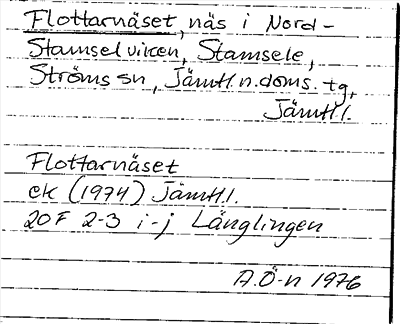 Flottarnäset, näs i Nord-
Stamselviken, Stamsele,
Ströms sn, Jämtl. n. doms. tg,
Jämtl l.
Flottarnäset
ek (1974) Jämtl.l.
20F 2-3 i-j Långlingen
A.Ö-n 1976